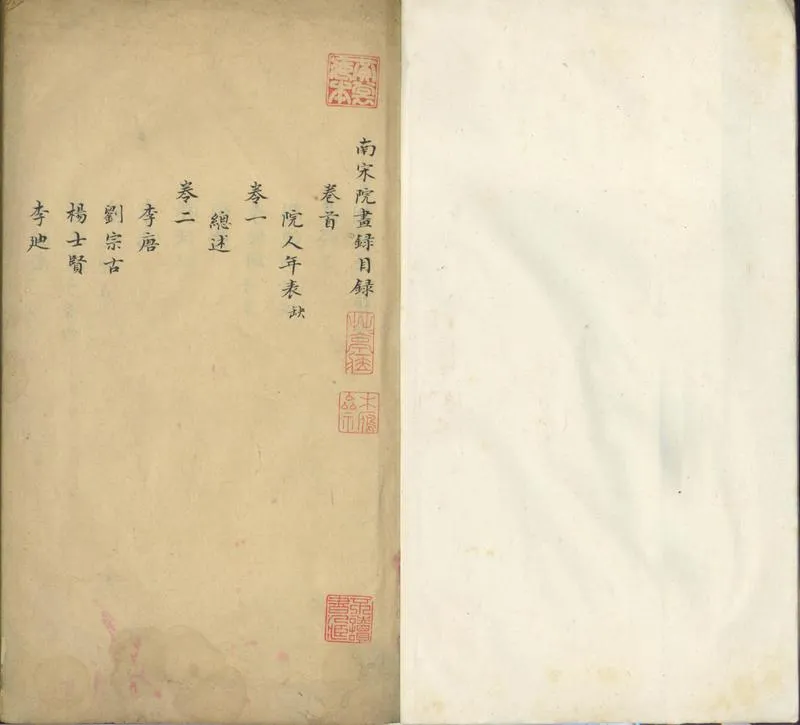 南宋院畫録目録
卷首
院人年表缺
卷一
總述
卷二
李唐
劉宗古
楊士賢
李迪